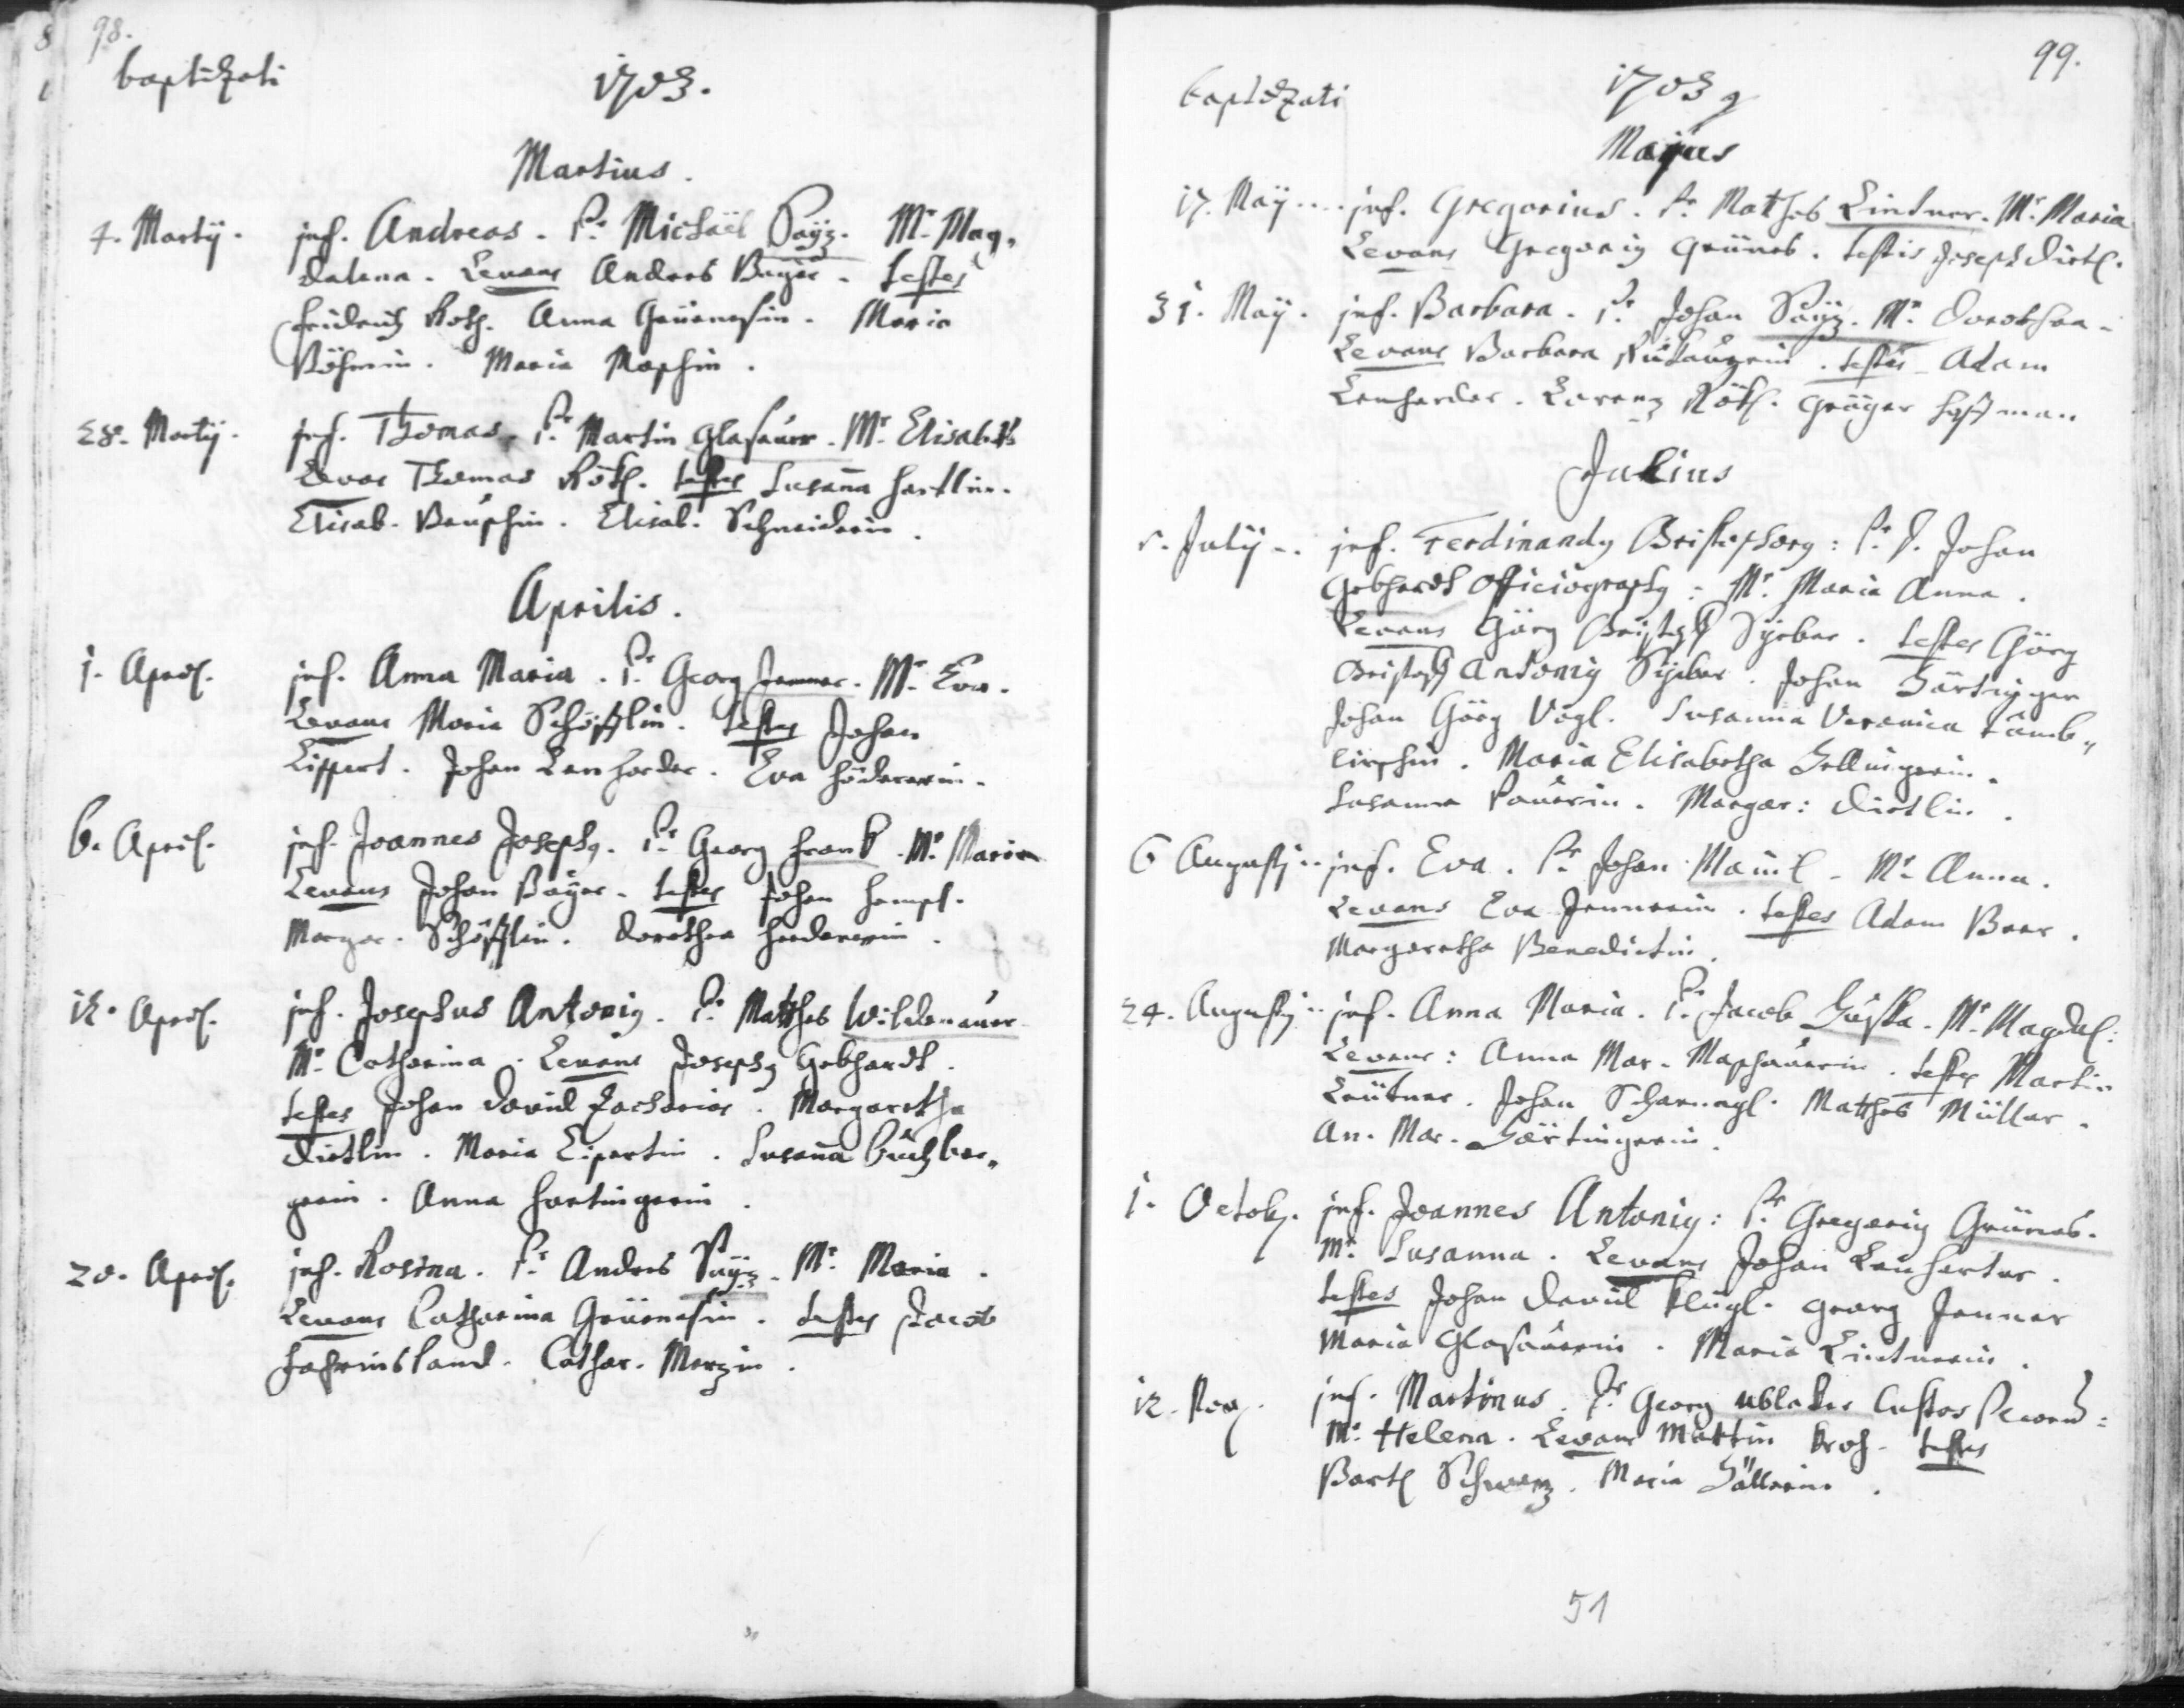 98.
baptizati 1703.
Martius.
4. Martÿ. inf. Andreas. Pr. Michaël Säÿz. Mr. Mag„
dalena. Levans Andres Baÿer. testes
fridrich Roth. Anna Grüenesin. Maria
Böhmin. Maria
28. Martÿ. inf. Thomas. Pr. Martin Glasauer. Mr. Elisabeth
Levas Thomas Röth. testes Susaña hartlin.
Elisab. Elisab. Schneiderin.
Aprilis.
1. April. inf. Anna Maria. Pr. Georg Jenner. Mr. Eva.
Levans Maria Schöfflin. testes Johan
Lippert. Johan Lenharder. Eva höderin.
6. April. inf. Joannes Josephq. Pr. Georg frank. Mr. Maria
Levans Johan Baÿer. testes Johan hempl.
Margar. Schöfflin. Dorothea
12. April. inf. Josephus Antoniq. Pr. Matthes Wildenauer
Mr. Catharina. Levans Josephq Gebhardt.
testes Johan David Zacharias. Margaretha
Dietlin. Maria Lipertin. Susaña Buchber„
gerin. Anna hartingerin.
20. April. inf. Rosina. Pr. Andres Säÿz. Mr. Maria.
Levans Catharina Grüenesin. testes Jacob
Cathar. Merzin.
99.
baptizati 1703
Majus
17. Maÿ.... inf. Gregorius. Pr. Mathes Lindner. Mr. Maria
Levans Gregoriq Grünes. testis Joseph Dietl.
31. Maÿ. inf. Barbara. Pr. Johan Säÿz. Mr. Dorothea.
Levans Barbara testes Adam
Lenharder. Lorenz Röth. Hoffman.
Julius
5. Julÿ.. inf. Ferdinandq Christophorq: Pr. D. Johan
Gebhardt Officiographq: Mr. Maria Anna.
Levans Görg Christoph testes Görg
Christoph Antoniq Johan Härtinger
Johan Görg Vogl. Susanna Veronica
Maria Elisabetha
Susanna Margar: Dietlin.
6 Augusti.. inf. Eva. Pr. Johan Mr. Anna.
Levans Eva Jennerin. testes Adam Beer.
Margaretha Benedictin.
24. Augusti.. inf. Anna Maria. Pr. Jacob Mr. Magdal:
Levans: Anna Mar. testes Martin
Johan Scharnagl. Matthes Müller.
An. Mar. Härtingerin.
1. Octob. inf. Joannes Antoniq: Pr. Gregoriq Grünes.
Mr. Susanna. Levans Johan Lenharter.
testes Johan David Klügl. Georg Jenner
Maria Glasauerin. Maria Lintnerin.
12. Nov. inf. Martinus. Pr. Georg Ublaker Custos
Mr. Helena. Levans Martin testes
Bartl Schwarz. Maria
51